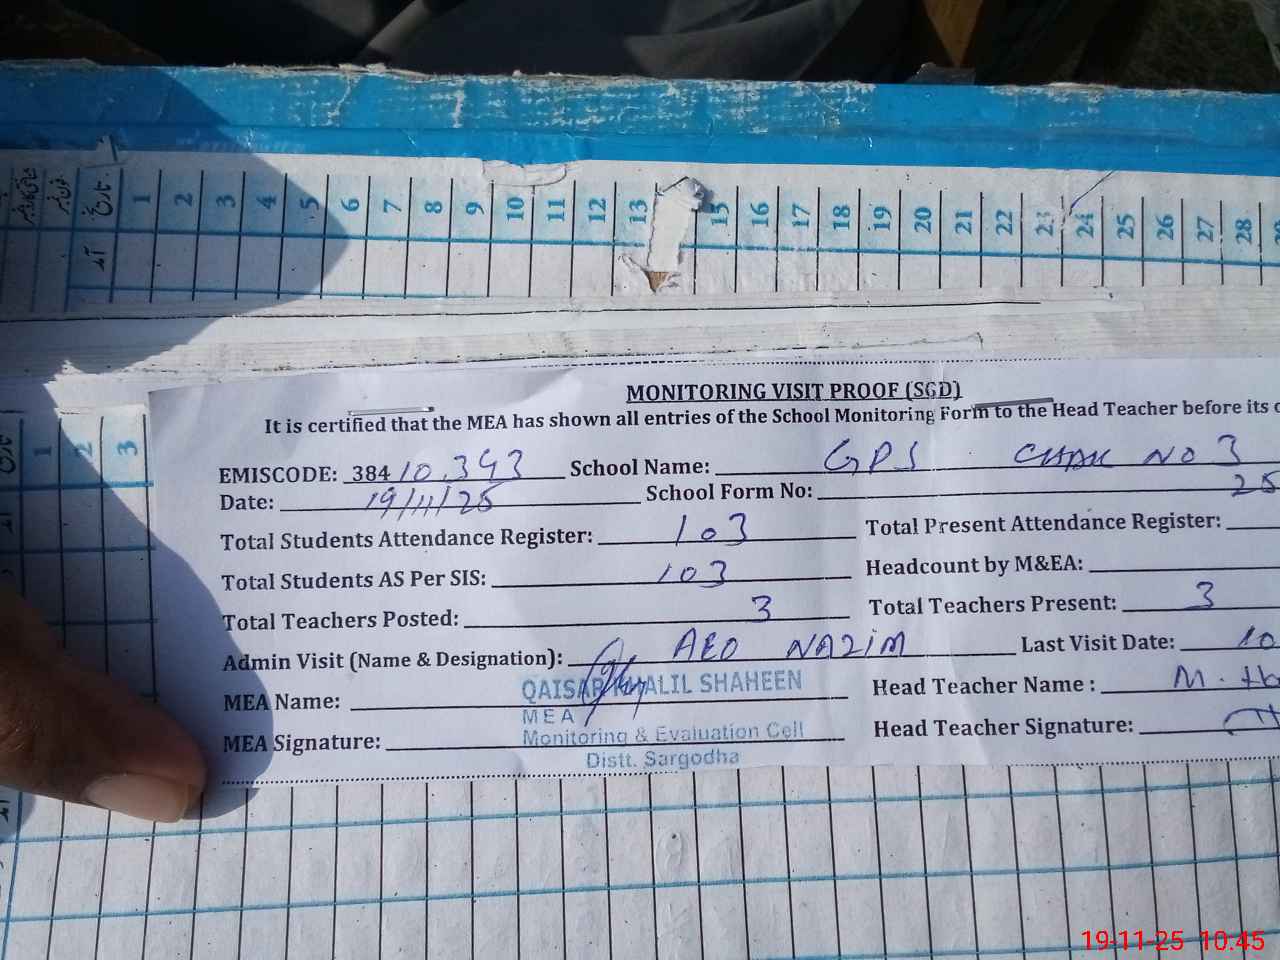 شناختی کارڈ نمبر
فون نمبر
تاریخ 1 2 3 4 5 6 7 8 9 10 11 12 13 15 16 17 18 19 20 21 22 23 24 25 26 27 28
آمد
1 2 3
MONITORING VISIT PROOF (SGD)
It is certified that the MEA has shown all entries of the School Monitoring Form to the Head Teacher before its
EMISCODE: 38410343 School Name: GPS CHAK NO 3
Date: 19/11/25 School Form No: 25
Total Students Attendance Register: 103 Total Present Attendance Register:
Total Students AS Per SIS: 103 Headcount by M&EA:
Total Teachers Posted: 3 Total Teachers Present: 3
Admin Visit (Name & Designation): AEO NAZIM Last Visit Date: 10
MEA Name: QAISAR KHALIL SHAHEEN Head Teacher Name : M.
MEA
MEA Signature: Monitoring & Evaluation Cell Head Teacher Signature:
Distt. Sargodha
19-11-25 10.45